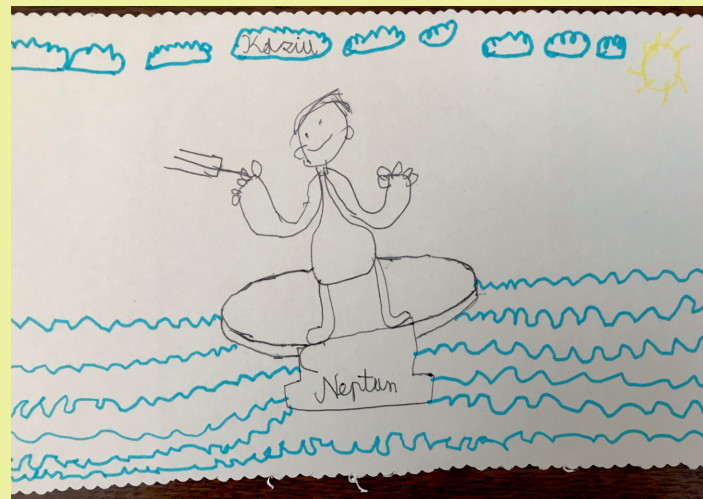 Kaziu
Neptun